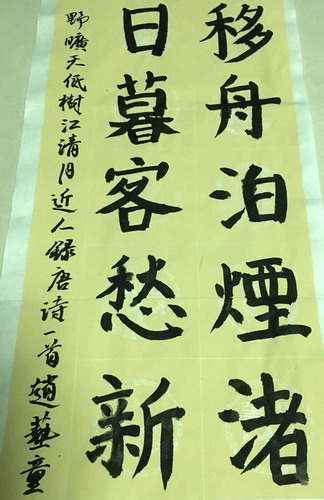 移舟泊煙渚
日暮客愁新
野曠天低樹江清月近人錄唐诗一首趙藝童